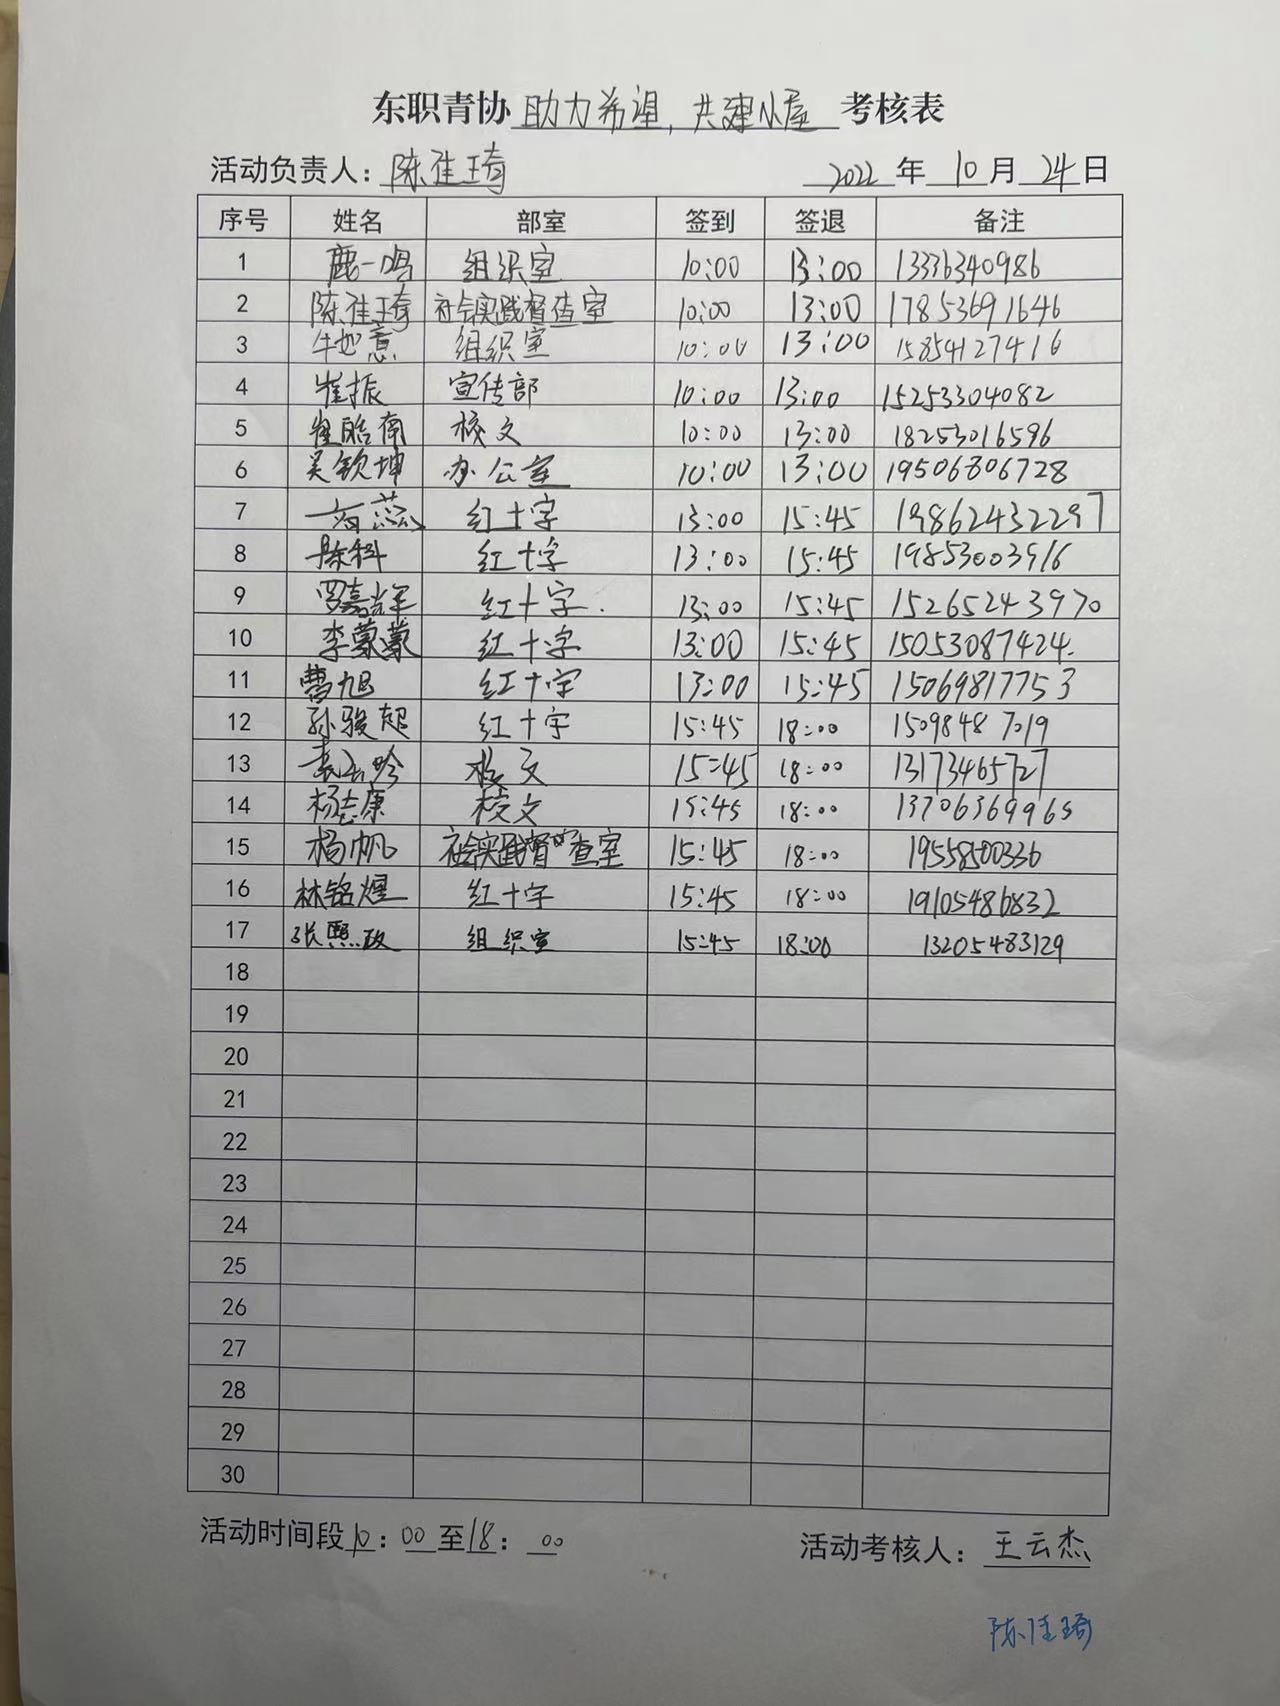 东职青协 助力希望，共建小屋 考核表
活动负责人：陈佳琦 2022 年 10 月 24 日
序号 姓名 部室 签到 签退 备注
1 鹿一鸣 组织室 10:00 13:00 13336340986
2 陈佳琦 社会实践督查室 10:00 13:00 17853691646
3 牛如意 组织室 10:00 13:00 15854127416
4 崔振 宣传部 10:00 13:00 15253304082
5 崔皓南 校文 10:00 13:00 18253016596
6 吴钦坤 办公室 10:00 13:00 19506806728
7 红十字 13:00 15:45 19862432297
8 陈科 红十字 13:00 15:45 19853003916
9 罗嘉辉 红十字 13:00 15:45 15265243970
10 李蒙蒙 红十字 13:00 15:45 15053087424
11 曹旭 红十字 13:00 15:45 15069817753
12 孙骏超 红十字 15:45 18:00 1509848 7019
13 校文 15:45 18:00 13173465727
14 杨志康 校文 15:45 18:00 13706369965
15 杨帆 社会实践督查室 15:45 18:00 19558500336
16 林铭煜 红十字 15:45 18:00 19105486832
17 张熙政 组织室 15:45 18:00 13205483129
18
19
20
21
22
23
24
25
26
27
28
29
30
活动时间段 10：00 至 18：00 活动考核人：王云杰
陈佳琦